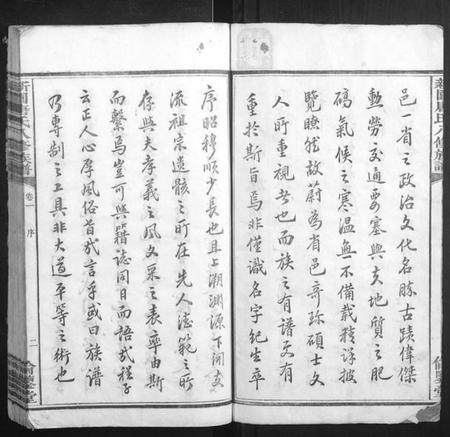 邑一省之政治文化名勝古蹟偉傑
勲勞交通要塞與夫地質之肥
磽氣候之寒温無不備載精詳披
覽瞭然故蔚為省邑奇珍碩士文
人所重視者也而族之有譜更有
重於斯旨焉非僅識名字紀生卒
序昭穆順少長也且上溯淵源下衍支
流祖宗遺骸之所在先人德範之所
存與夫孝義之風文采之表率由斯
而繫焉豈可與籍誌同日而語哉程子
云正人心厚風俗首哉言乎或曰族譜
乃專制之工具非大道平等之術也
卷一
序
二